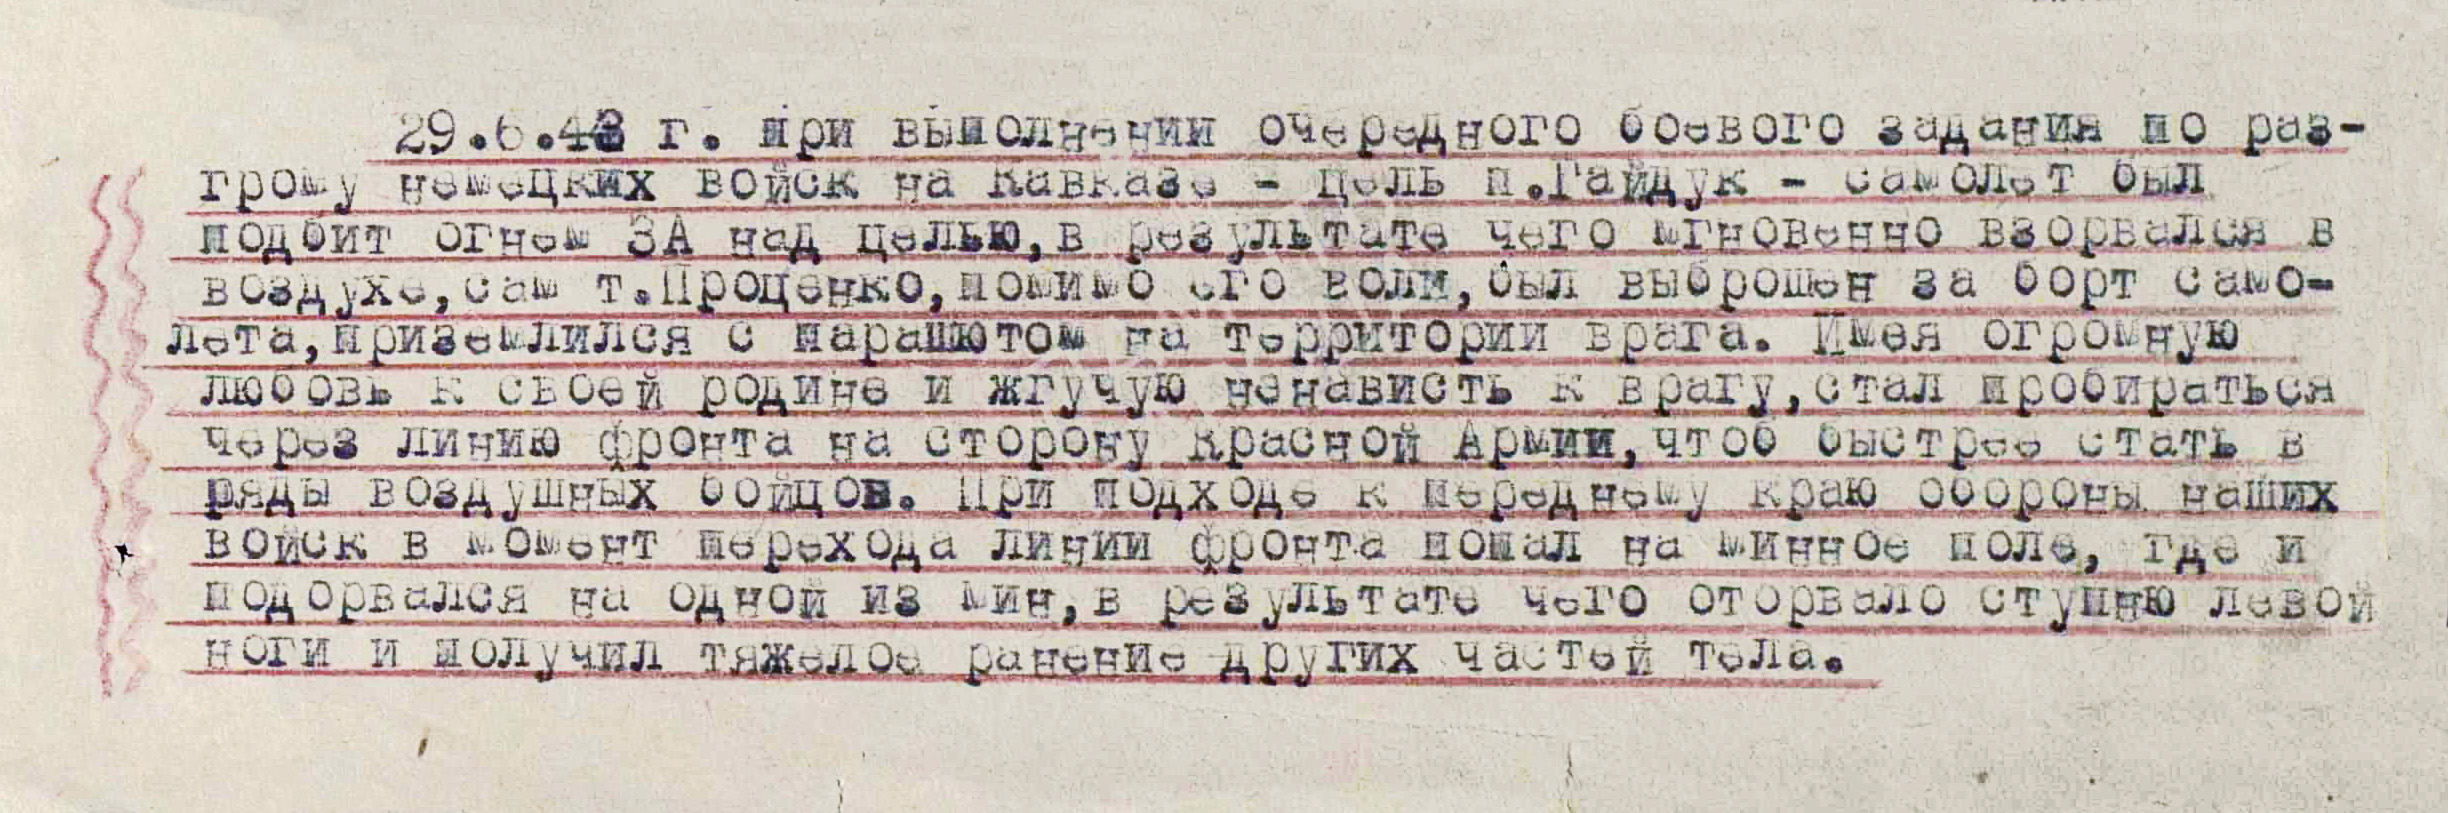 29.6.43 г. при выполнении очередного боевого задания по раз-
грому немецких войск на Кавказе - цель п.Гайдук - самолет был
подбит огнем ЗА над целью,в результате чего мгновенно взорвался в
воздухе,сам т.Проценко,помимо его воли,был выброшен за борт само-
лета,приземлился с парашютом на территории врага. Имея огромную
любовь к своей родине и жгучую ненависть к врагу,стал пробираться
через линию фронта на сторону Красной Армии,чтоб быстрее стать в
ряды воздушных бойцов. При подходе к переднему краю обороны наших
войск в момент перехода линии фронта попал на минное поле, где и
подорвался на одной из мин,в результате чего оторвало ступню левой
ноги и получил тяжелое ранение других частей тела.